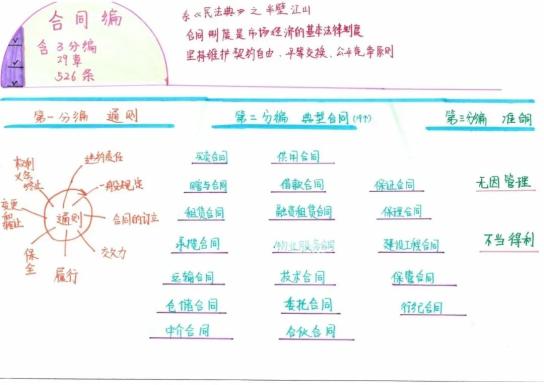 合同编
含3分编
29章
526条
系《民法典》之半壁江山
合同制度是市场经济的基本法律制度
坚持维护契约自由、平等交换、公平竞争原则
第一分编 通则
第二分编 典型合同(19个)
第三分编 准合同
通则
违约责任
一般规定
合同的订立
效力
履行
保全
变更和
权利义务终止
买卖合同 供用合同
赠与合同 借款合同 保证合同
租赁合同 融资租赁合同 保理合同
承揽合同 物业服务合同 建设工程合同
运输合同 技术合同 保管合同
仓储合同 委托合同 行纪合同
中介合同 合伙合同
无因管理
不当得利